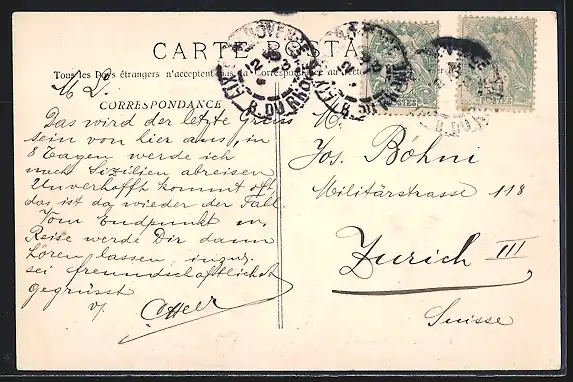 CARTE POSTALE
Tous les Pays étrangers n'acceptent pas la Correspondance au recto
M. L.
CORRESPONDANCE
Das wird der letzte Gruss
sein von hier aus, in
8 Tagen werde ich
nach Sizilien abreisen
Unverhofft kommt oft
das ist da wieder der Fall
Vom Endpunkt m.
Reise werde Dir dann
hören lassen, inzw.
sei freundschaftlichst
gegrüsst
v/
M.
Jos. Böhni
Militärstrasse 118
Zurich III
Suisse
POSTES
B. DU RHONE